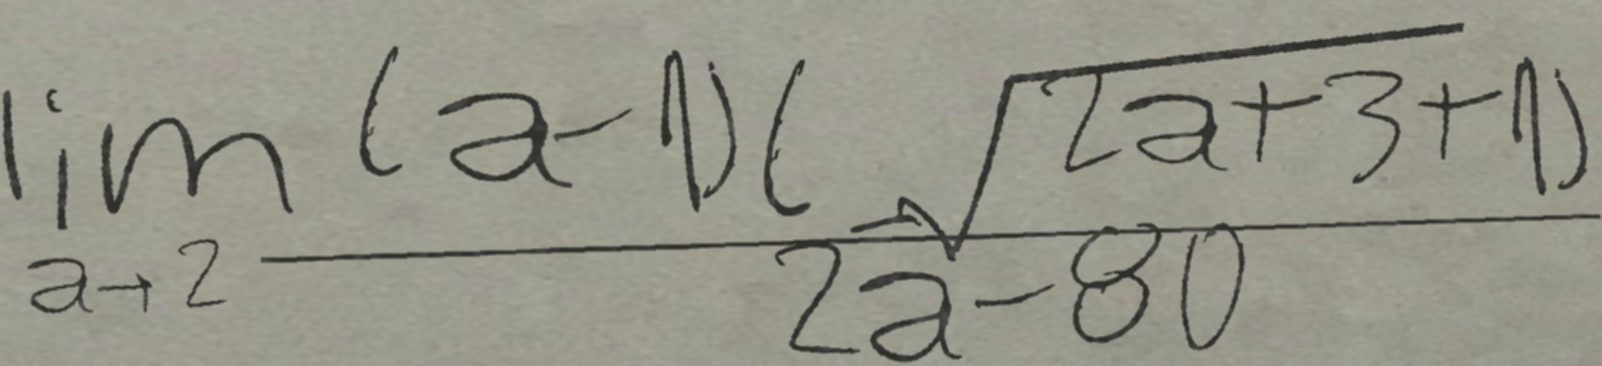 \lim_{a \to 2} \frac{(a-1)(\sqrt{2a+3}+1)}{2a-80}